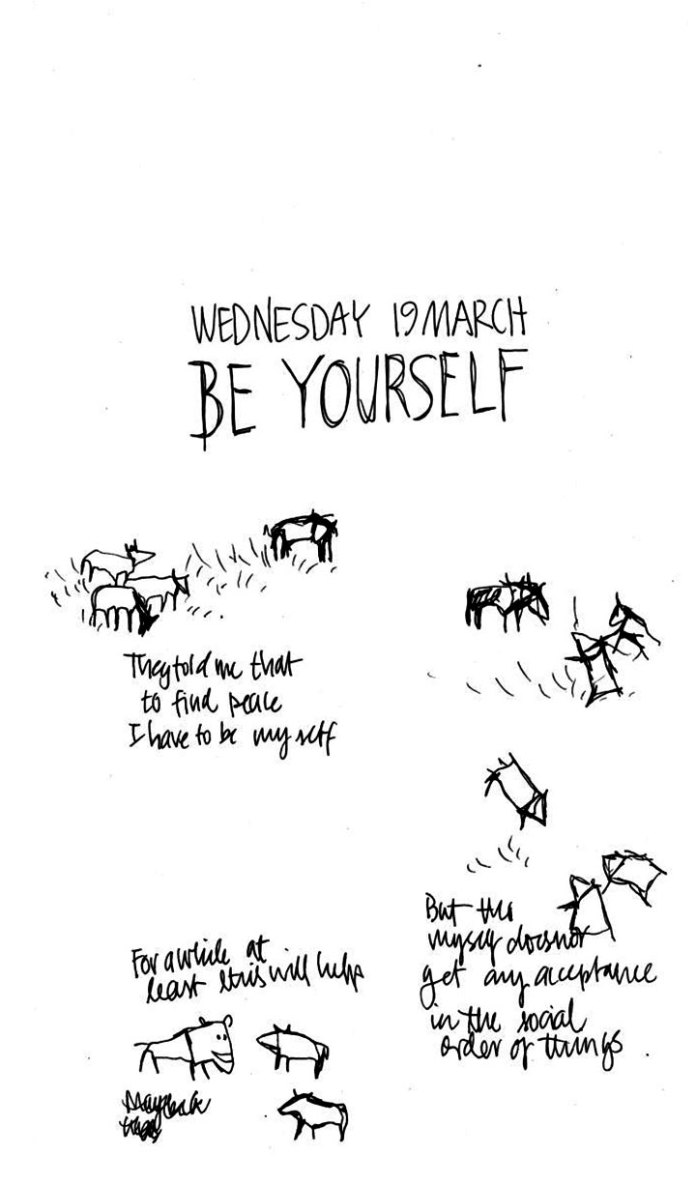 WEDNESDAY 19 MARCH
BE YOURSELF
They told me that
to find peace
I have to be my self
But this
myself doesnot
get any acceptance
in the social
order of things.
For a while at
least this will help